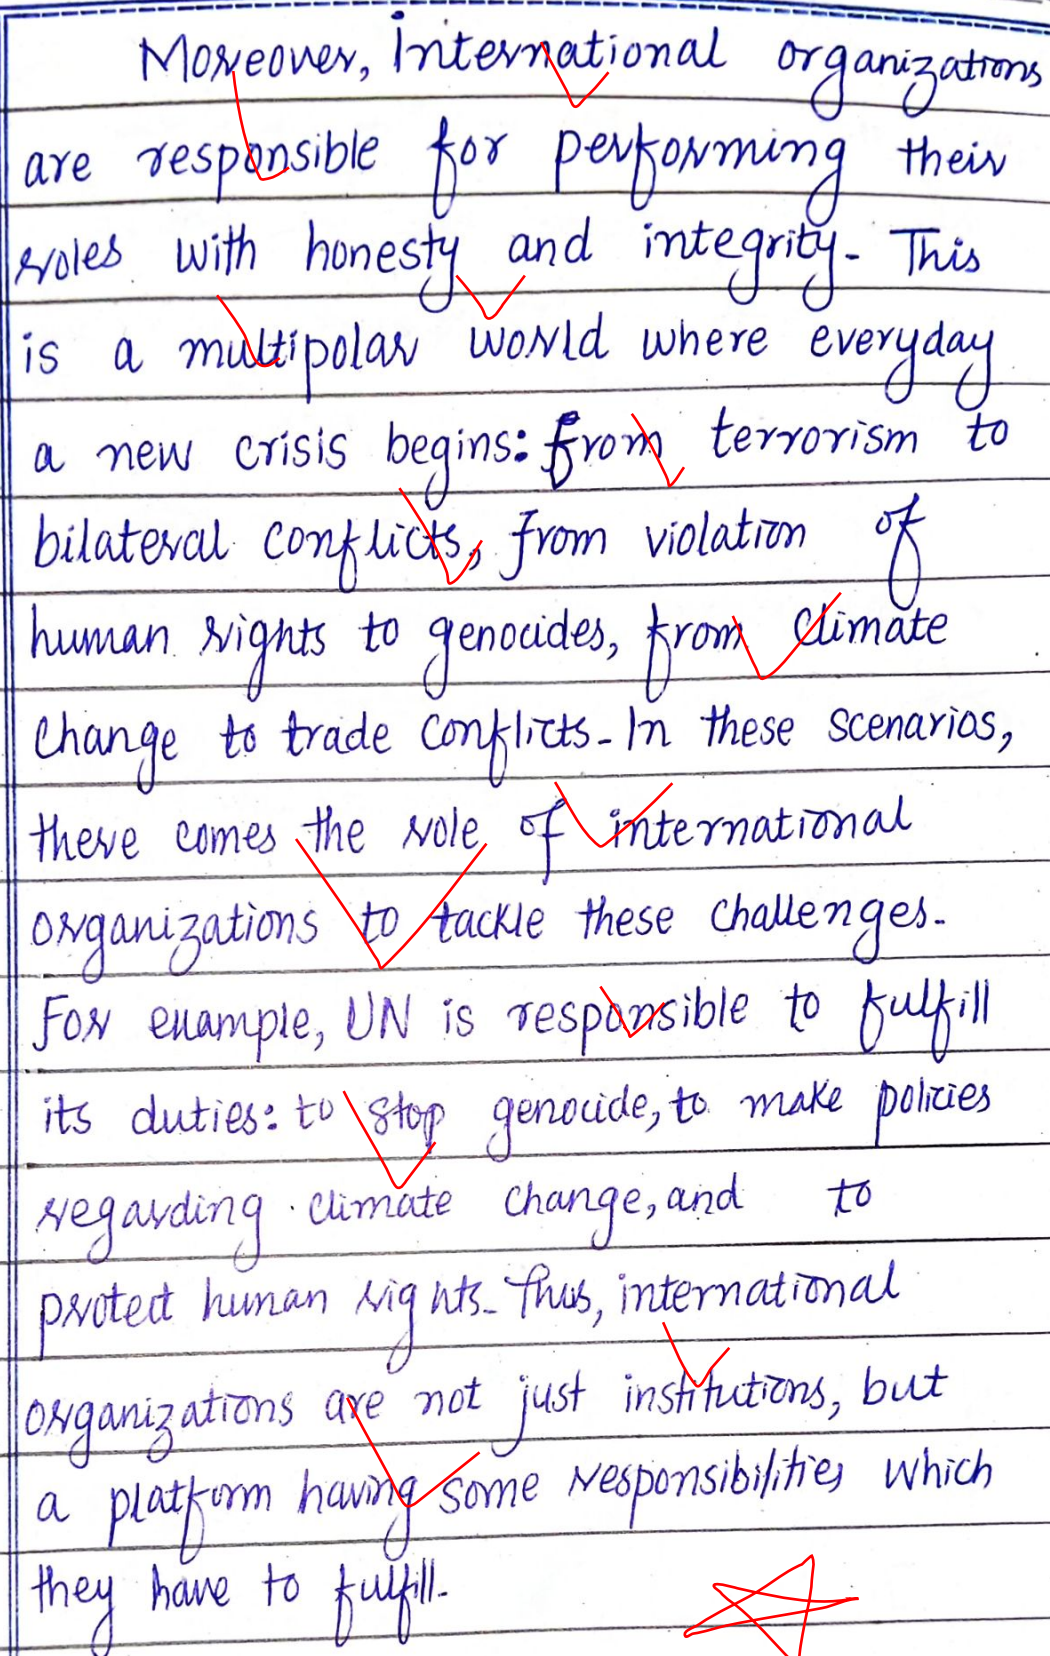 Moreover, International organizations
are responsible for performing their
roles with honesty and integrity. This
is a multipolar world where everyday
a new crisis begins: from terrorism to
bilateral conflicts, from violation of
human rights to genocides, from climate
change to trade conflicts. In these scenarios,
there comes the role of international
organizations to tackle these challenges.
For example, UN is responsible to fulfill
its duties: to stop genocide, to make policies
regarding climate change, and to
protect human rights. Thus, international
organizations are not just institutions, but
a platform having some responsibilities which
they have to fulfill.